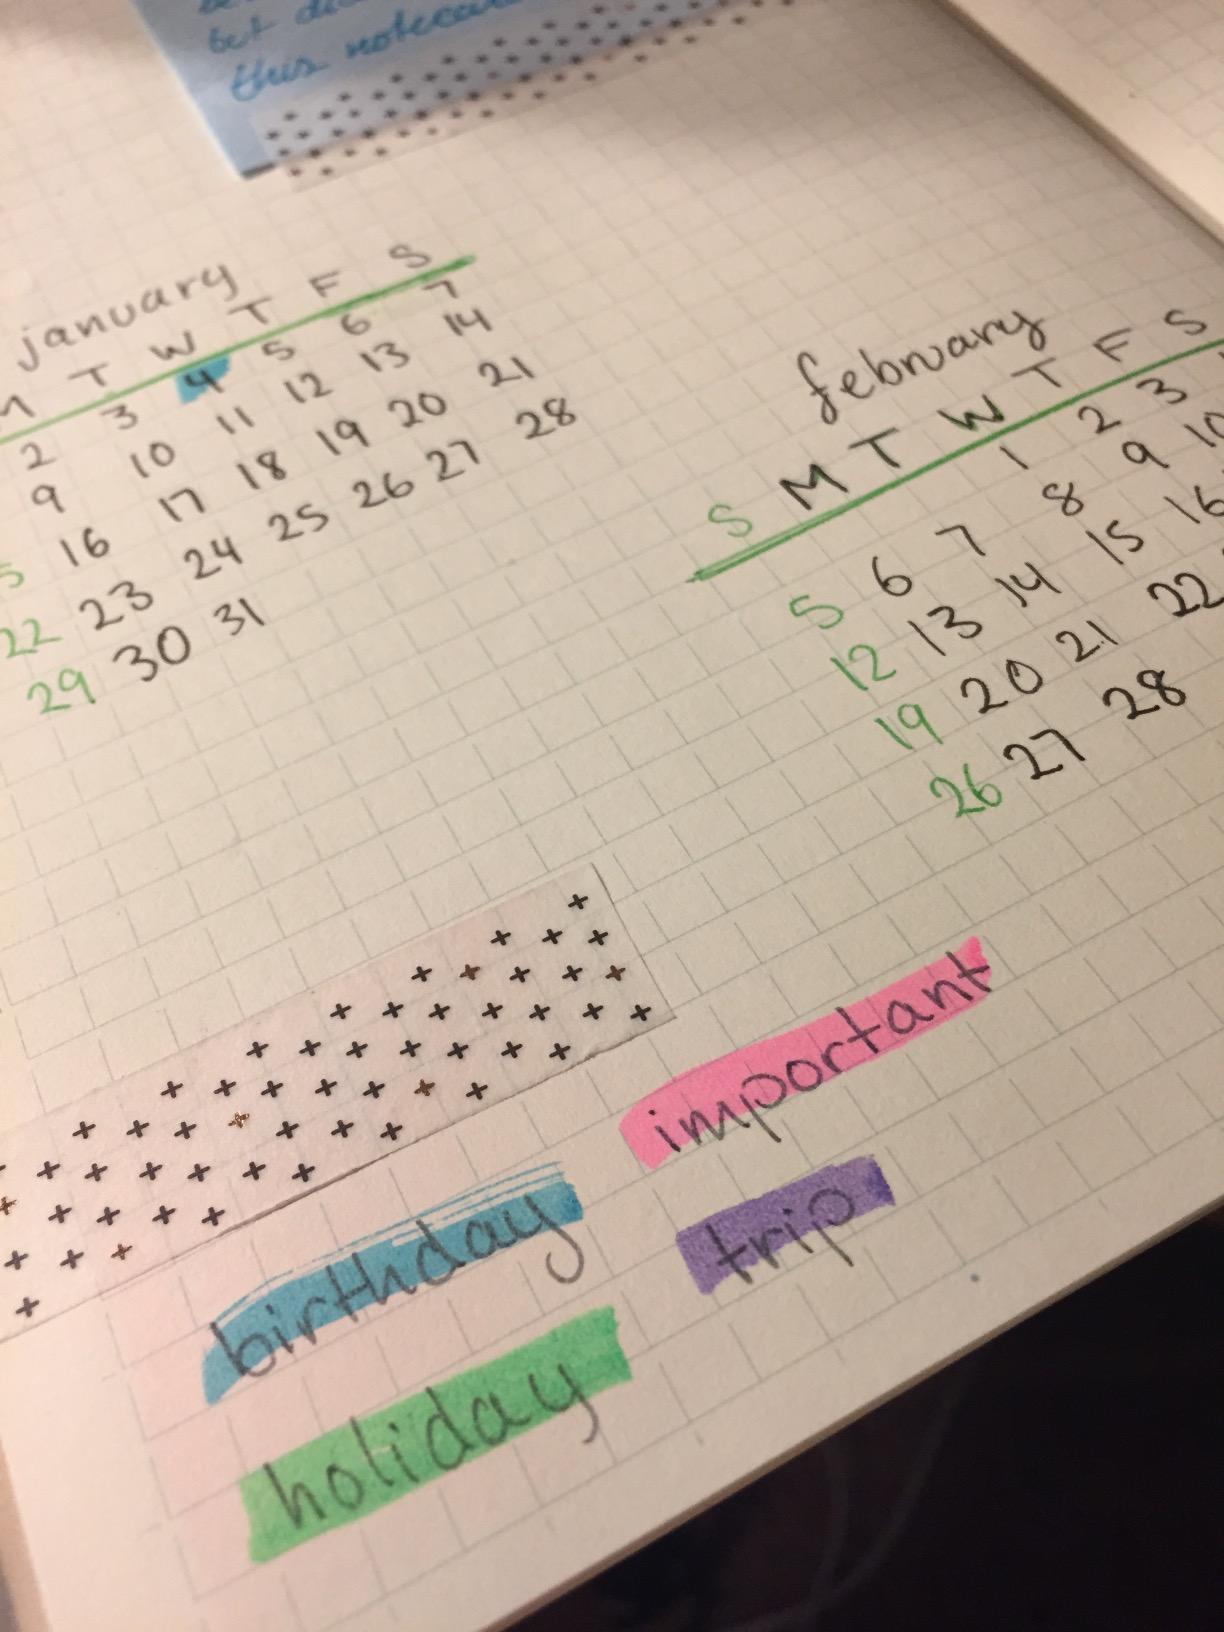 this
january
T W T F S
2 3 4 5 6 7
9 10 11 12 13 14
16 17 18 19 20 21
22 23 24 25 26 27 28
29 30 31
february
S M T W T F S
1 2 3
5 6 7 8 9 10
12 13 14 15 16
19 20 21 22
26 27 28
important
birthday
trip
holiday